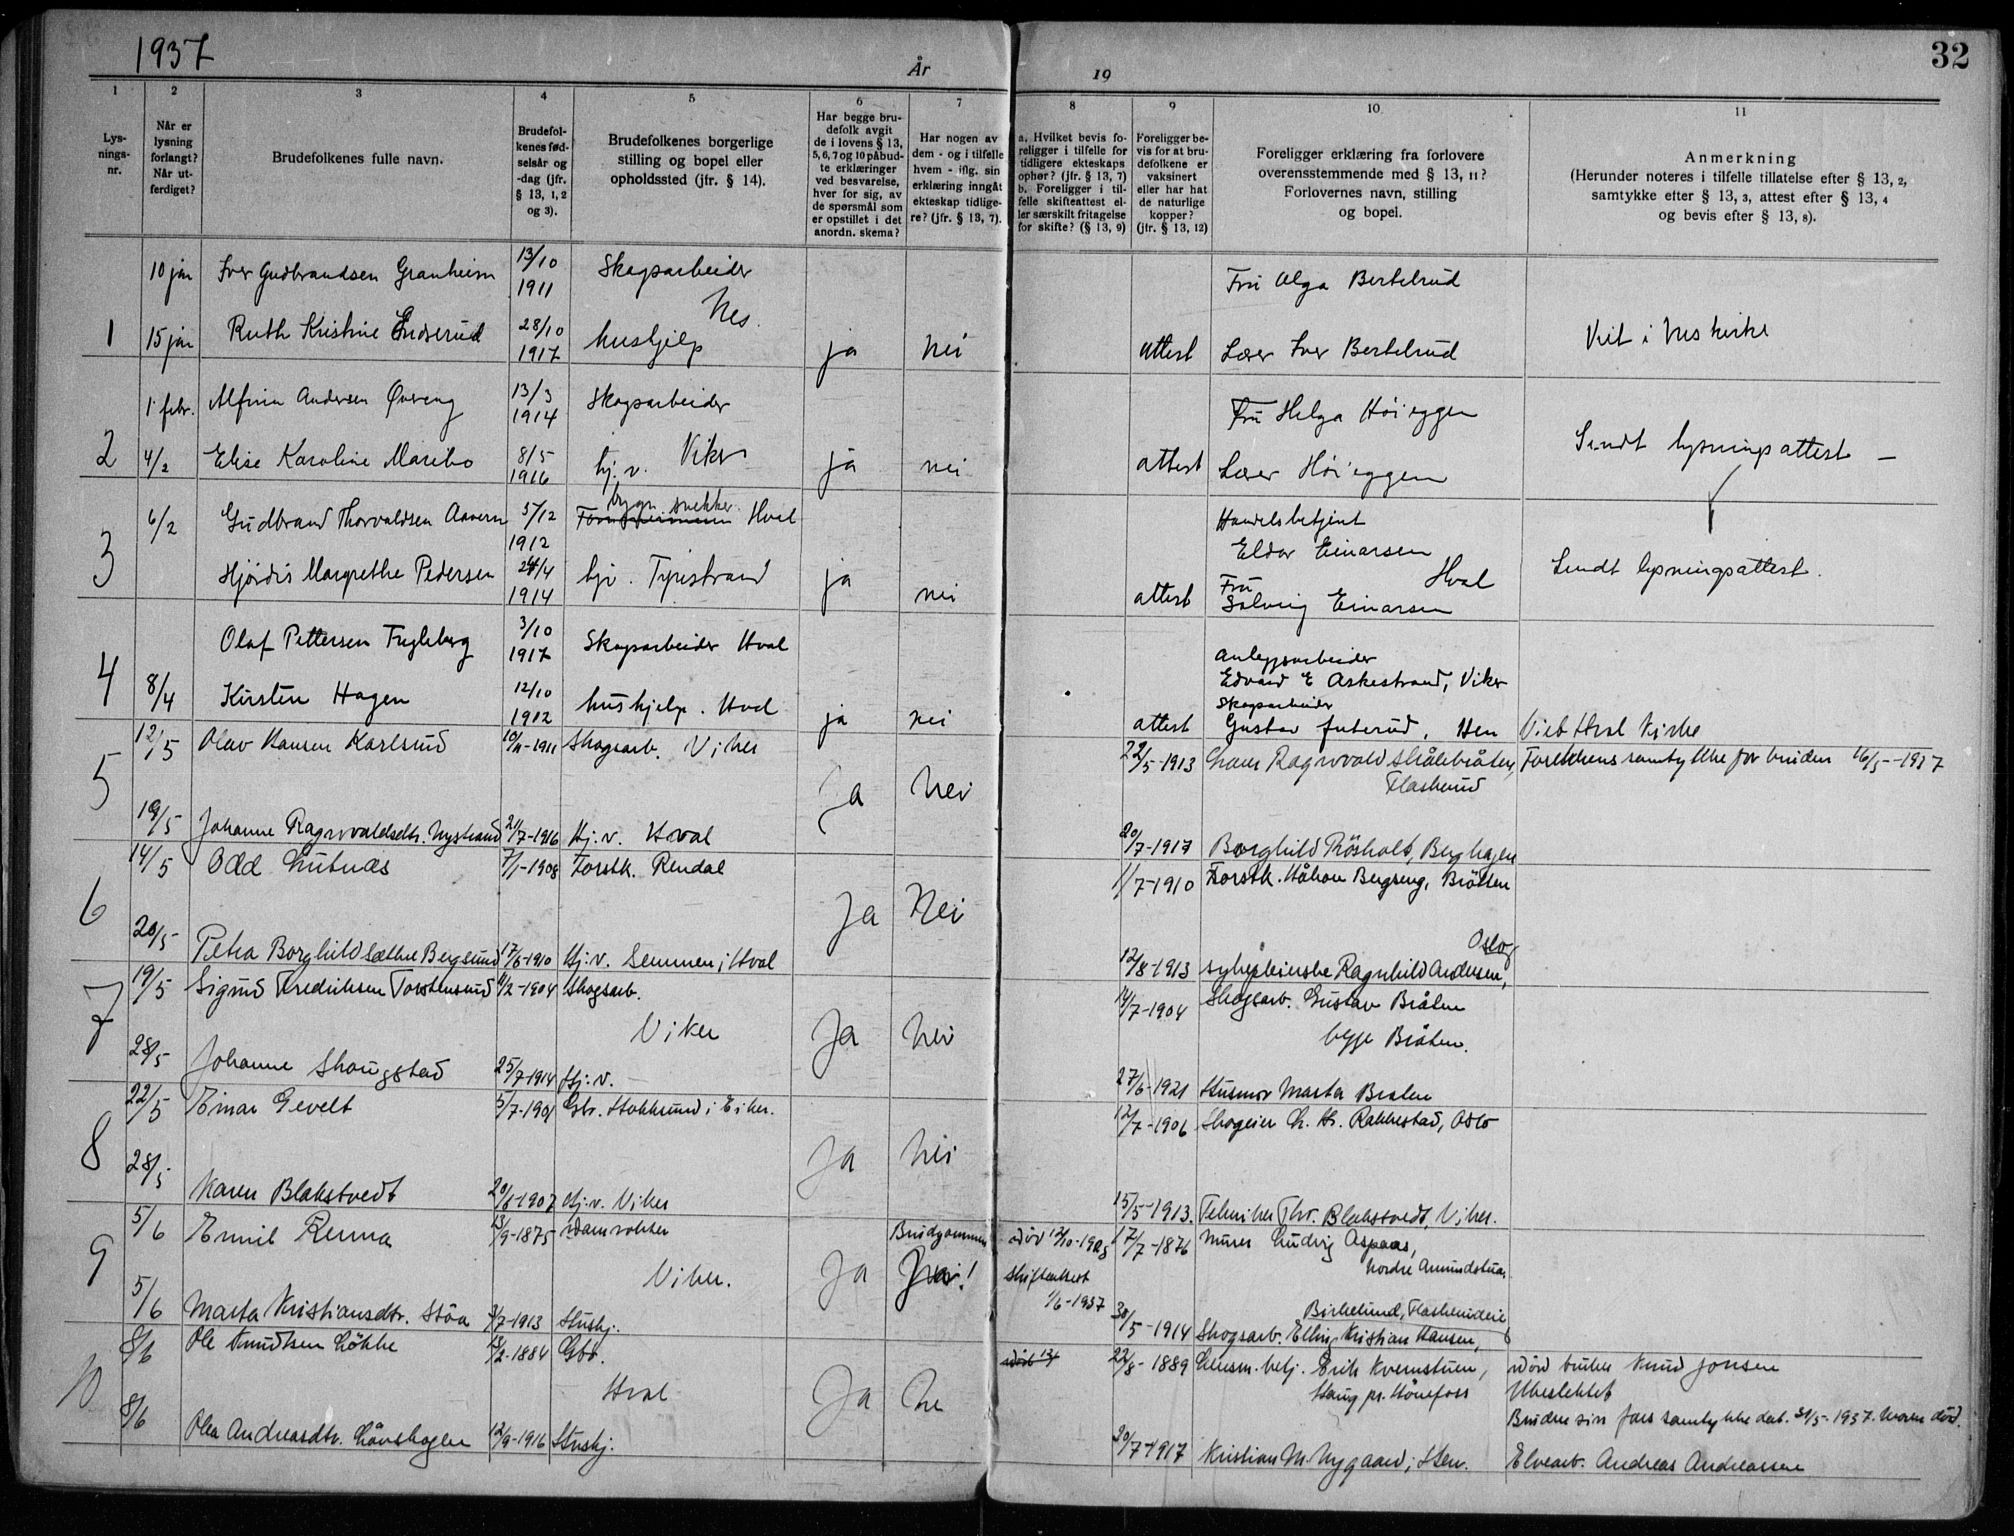 1937
År
19
32
1
2
3
4
5
6
7
8
9
10
11
Lysnings-nr.
Når er lysning forlangt? Når utferdiget?
Brudefolkenes fulle navn.
Brudefolkenes fødselsår og -dag (jfr. § 13, 1, 2 og 3).
Brudefolkenes borgerlige stilling og bopel eller opholdssted (jfr. § 14).
Har begge brudefolk avgit de i lovens § 13, 5, 6, 7 og 10 påbudte erklæringer ved besvarelse, hver for sig, av de spørsmål som er opstillet i det anordn. skema?
Har nogen av dem - og i tilfelle hvem - iflg. sin erklæring inngåt ekteskap tidligere? (jfr. § 13, 7).
a. Hvilket bevis foreligger i tilfelle for tidligere ekteskaps ophør? (jfr. § 13, 7) b. Foreligger i tilfelle skifteattest eller særskilt fritagelse for skifte? (§ 13, 9)
Foreligger bevis for at brudefolkene er vaksinert eller har hat de naturlige kopper? (jfr. § 13, 12)
Foreligger erklæring fra forlovere overensstemmende med § 13, 11? Forlovernes navn, stilling og bopel.
Anmerkning (Herunder noteres i tilfelle tillatelse efter § 13, 2, samtykke efter § 13, 3, attest efter § 13, 4 og bevis efter § 13, 8).
10 jan Iver Gudbrandsen Granheim 13/10 1911 Skogsarbeider Fru Olga Bertelrud
Nes.
1 15 jan Ruth Kristine Enderud 28/10 1917 hushjelp ja nei attest Lærer Iver Bertelrud Viet i Nes kirke
1 febr. Alfinn Andersen Øvreng 13/3 1914 Skogsarbeider Fru Helga Høieggen
2 4/2 Elise Karoline Maribo 8/5 1916 hj. v. Viker ja nei attest Lærer Høieggen Sendt lysningsattest —
6/2 Gudbrand Thorvaldsen Aavern 5/12 1912 bygn. snekker Hval Handelsbetjent Eldor Einarsen
3 Hjørdis Margrethe Pedersen 24/4 1914 hjv. Tyristrand ja nei attest Hval Fru Solveig Einarsen Sendt lysningsattest.
Olaf Pettersen Fugleberg 3/10 1917 Skogsarbeider Hval Anleggsarbeider Edvard E Askestrand, Viker
4 8/4 Kirsten Hagen 12/10 1912 hushjelp. Hval ja nei attest Skogsarbeider Gustav Juterud, Hen Viet Hval Kirke
12/5 Olav Hansen Karlsrud 10/11-1911 Skogsarb. Viker 22/5-1913 Hans Ragnvald Skålebråten, Flaskerud Foreldrens samtykke for bruden 16/5-1937
5 Ja Nei
19/5 Johanne Ragnvaldsdtr. Nystrand 21/7-1916 Hj. v. Hval 20/7-1917 Borghild Røsholt, Berghagen
14/5 Odd Lutnæs 7/1-1908 Forstk. Rendal 11/7-1910 Forstk. Håkon Bergseng, Brøtten
6 Ja Nei
20/5 Petra Borghild Sæthre Bergsund 17/6-1910 Hj. v. Semmen i Hval 12/8-1913 sykepleierske Ragnhild Andersen, Oslo
19/5 Sigurd Fredriksen Torstensrud 11/2-1904 Skogsarb. 14/7-1904 Skogsarb. Gustav Bråten
7 Viker Ja Nei begge Bråten.
28/5 Johanne Skougstad 25/7-1914 Hj. v. 27/6-1921 Husmor Marta Bråten
22/5 Einar Gevelt 5/7-1901 Gbr. Hokksund i Eiker. 12/7-1906 Skogeier Chr. Rakkestad, Oslo
8 Ja Nei
28/5 Karen Blakstvedt 20/6-1907 Hj. v. Viker 15/5-1913. Tekniker Thv. Blakstvedt, Viker.
5/6 Emil Renna 13/9-1875 damvokter Brudgommen død 12/10-1925 17/7-1876 Murer Ludvig Aspaas, Nordre Amundstua
9 Viker. Ja Ja! Skifteattest 1/6-1937
5/6 Marta Kristiansdtr. Støa 3/7-1913 Hushj. 30/5-1914 Skogsarb. Elling Kristian Hansen, Birkelund, Flaskerudeie
8/6 Ole Knudsen Løkke 13/2-1884 Gbr. 22/8-1889 Lensm. betj. Erik Kvernstuen, Haug pr. Hønefoss
død bruker Knud Jonsen
10 Hval Ja Ne Ubeslektet
Brudens sin fars samtykke dat. 31/5-1937. Moren død.
8/6 Olea Andreasdtr. Løvshagen 12/9-1916 Hushj. 30/7-1917 Kristian M. Nygaard, Hen. Elvearb. Andreas Andreassen